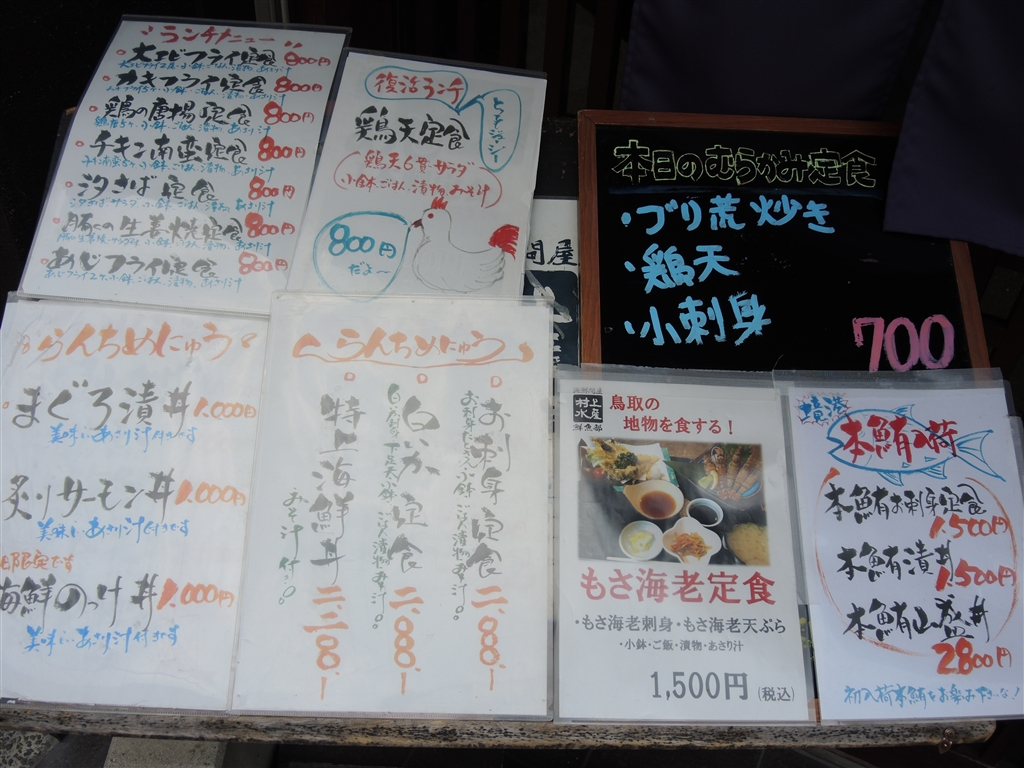 ランチメニュー
大エビフライ定食 800円
カキフライ定食 800円
鶏の唐揚定食 800円
チキン南蛮定食 800円
汐さば定食 800円
豚の生姜焼定食 800円
あじフライ定食 800円
復活ランチ
とってもジューシー
鶏天定食
鶏天6貫・サラダ
小鉢、ごはん、漬物、みそ汁
800円
だよ〜
問屋
本日のむらかみ定食
・ブリ荒炊き
・鶏天
・小刺身
700
らんちめにゅう
まぐろ漬丼 1,000円
美味しいあさり汁付きです
炙りサーモン丼 1,000円
美味しいあさり汁付きです
限定です
海鮮のっけ丼 1,000円
美味しいあさり汁付きです
らんちめにゅう
お刺身定食 二、〇八〇、ー
白いか定食 二、〇八〇、ー
特上海鮮丼 二、三〇八、ー
みそ汁付き。
村上水産
鮮魚部
鳥取の
地物を食する！
もさ海老定食
・もさ海老刺身・もさ海老天ぷら
・小鉢・ご飯・漬物・あさり汁
1,500円(税込)
境港
本鮪入荷
本鮪お刺身定食
1,500円
本鮪漬丼
1,500円
本鮪山盛丼
2,800円